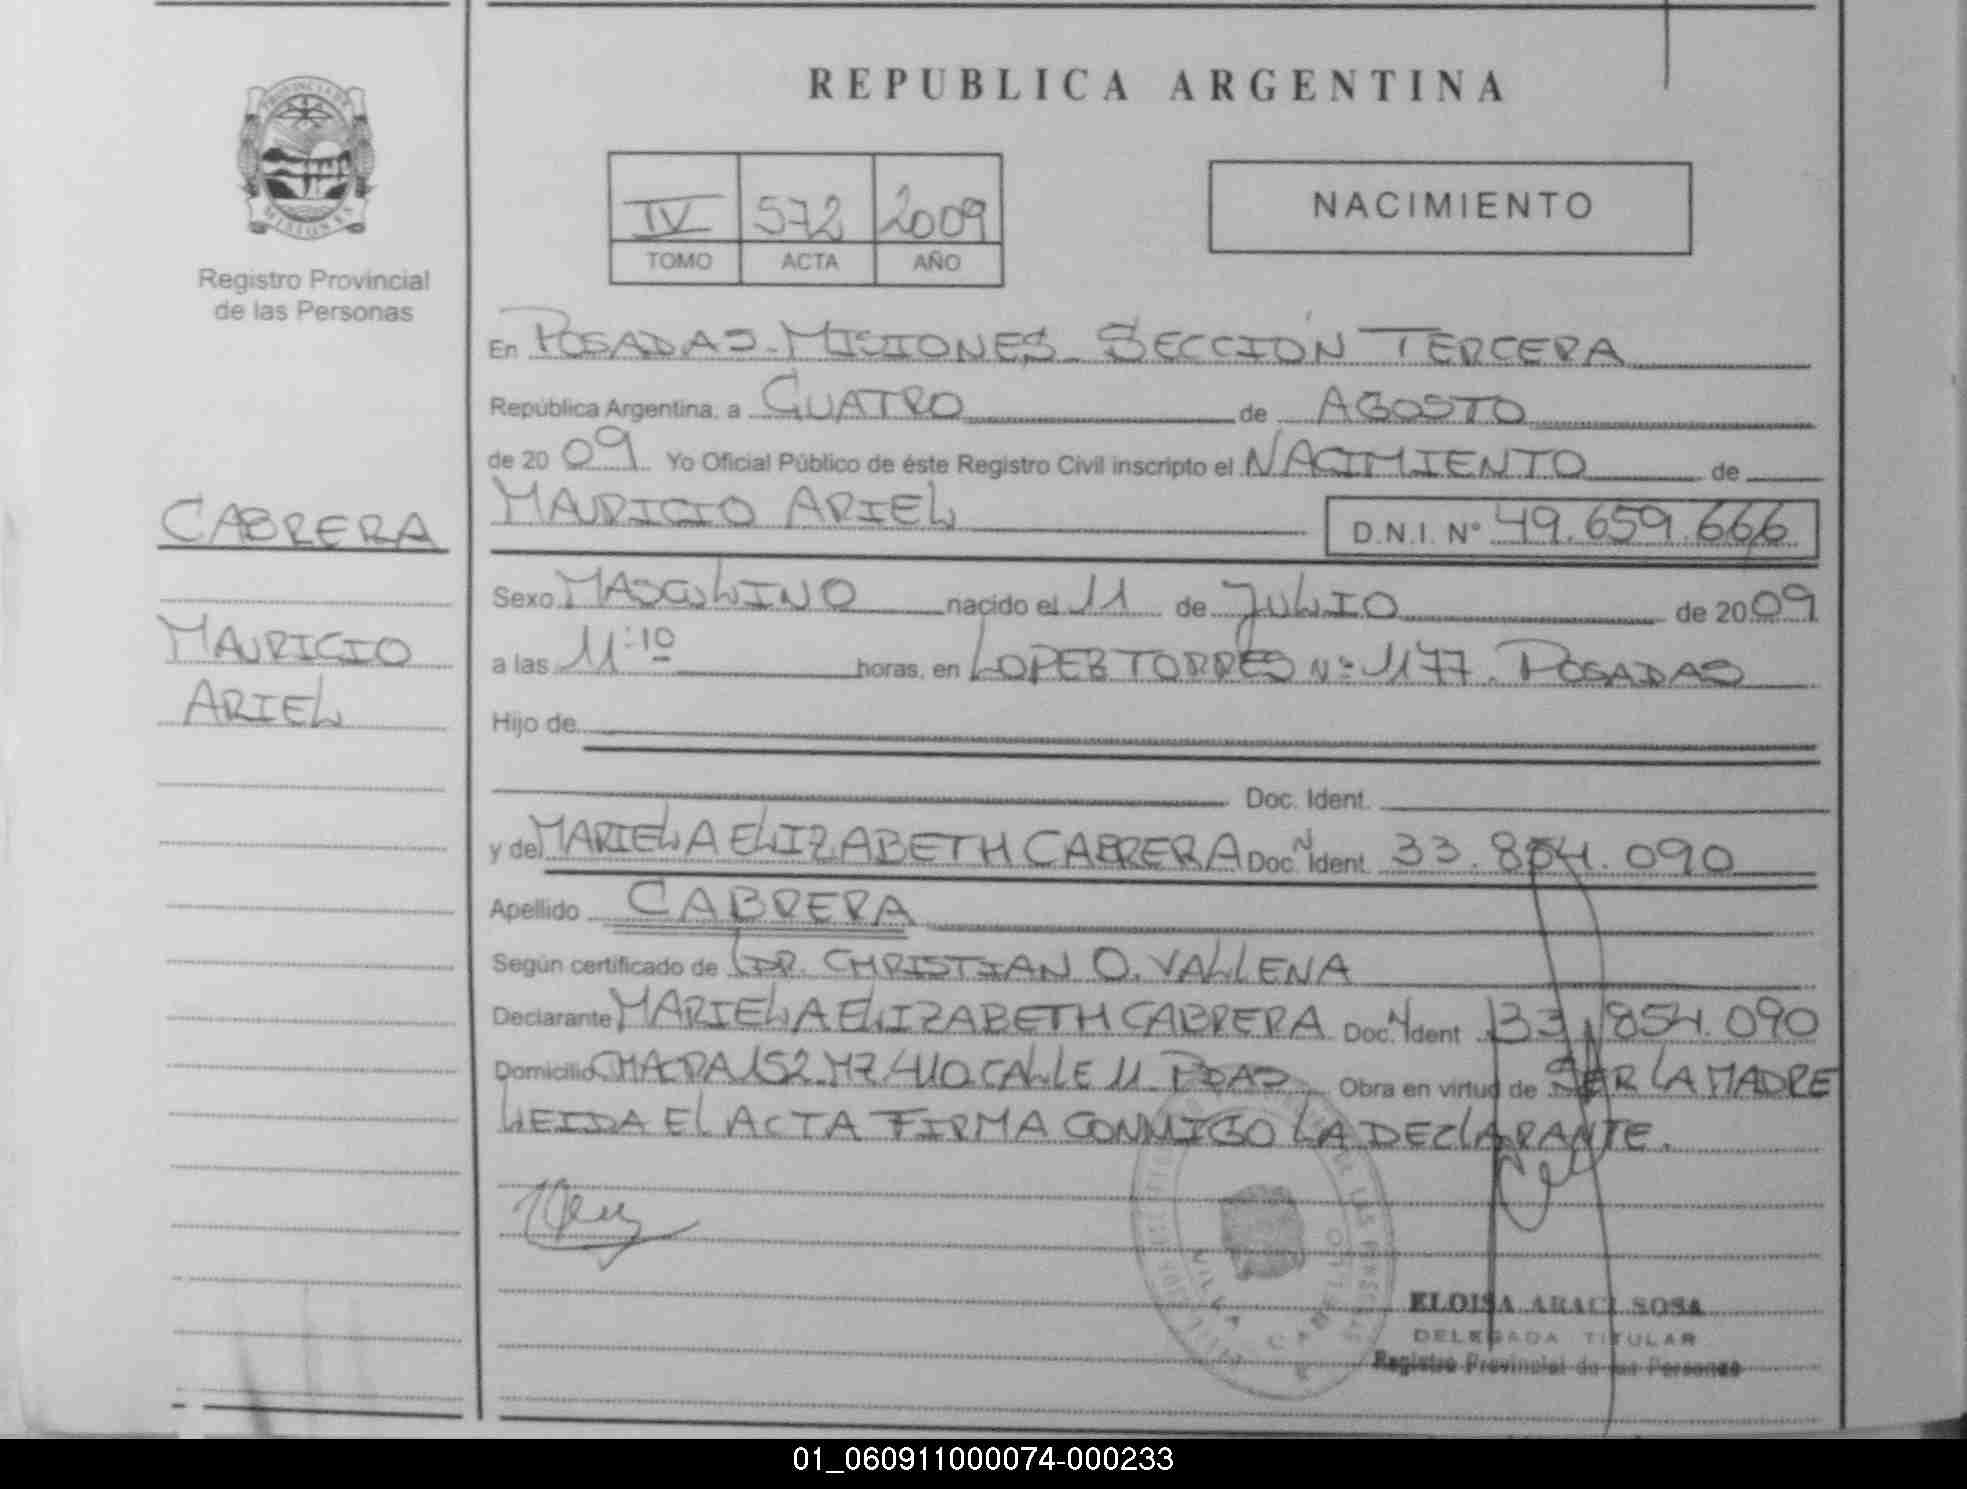 PROVINCIA DE
MISIONES
Registro Provincial
de las Personas
CABRERA
MAURICIO
ARIEL
REPUBLICA ARGENTINA
IV 572 2009
TOMO ACTA AÑO
NACIMIENTO
En POSADAS-MISIONES- SECCIÓN TERCERA
República Argentina, a CUATRO de AGOSTO
de 2009 Yo Oficial Público de éste Registro Civil inscripto el NACIMIENTO de
MAURICIO ARIEL D.N.I. Nº 49.659.666
Sexo MASCULINO nacido el 11 de JULIO de 2009
a las 11:10 horas, en LOPEZ TORRES Nº 1177. POSADAS
Hijo de
Doc. Ident.
y de MARIELA ELIZABETH CABRERA Doc. N Ident. 33.854.090
Apellido CABRERA
Según certificado de DR. CHRISTIAN O. VALLENA
Declarante MARIELA ELIZABETH CABRERA Doc. N Ident 33.854.090
Domicilio CHACRA 152. CALLE 11. PDAS. Obra en virtud de SER LA MADRE
LEIDA EL ACTA FIRMA CONMIGO LA DECLARANTE.
VILLA CABELLO
ELOISA ARACI SOSA
DELEGADA TITULAR
Registro Provincial de las Personas
01_060911000074-000233